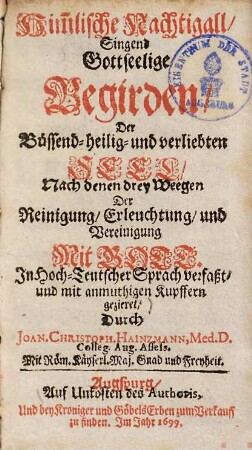 Him̃lische Nachtigall/
Singend
Gottseelige
Begirden/
Der
Büssend-heilig-und verliebten
SEEL/
Nach denen drey Weegen
Der
Reinigung/ Erleuchtung/ und
Vereinigung
Mit GOTT.
In Hoch-Teutscher Sprach verfaßt/
und mit anmuthigen Kupffern
gezieret/
Durch
JOAN. CHRISTOPH. HAINZMANN, Med. D.
Colleg. Aug. Assess.
Mit Röm. Käyserl. Maj. Gnad und Freyheit.
Augspurg/
Auf Unkosten des Authoris,
Und bey Kroniger und Göbels Erben zum Verkauff
zu finden. Im Jahr 1699.
EIGENTHUM DER STADT
AUGSBURG